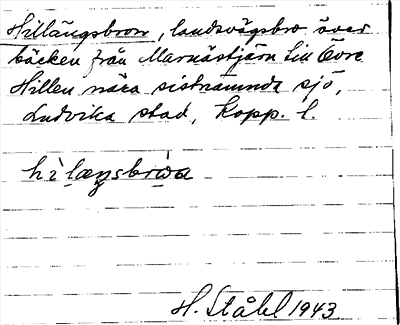 Hillängsbron, landsvägsbro över
bäcken från Marnästjärn till Övre
Hillen nära sistnämnda sjö,
Ludvika stad, Kopp. l.
H. Ståhl 1943